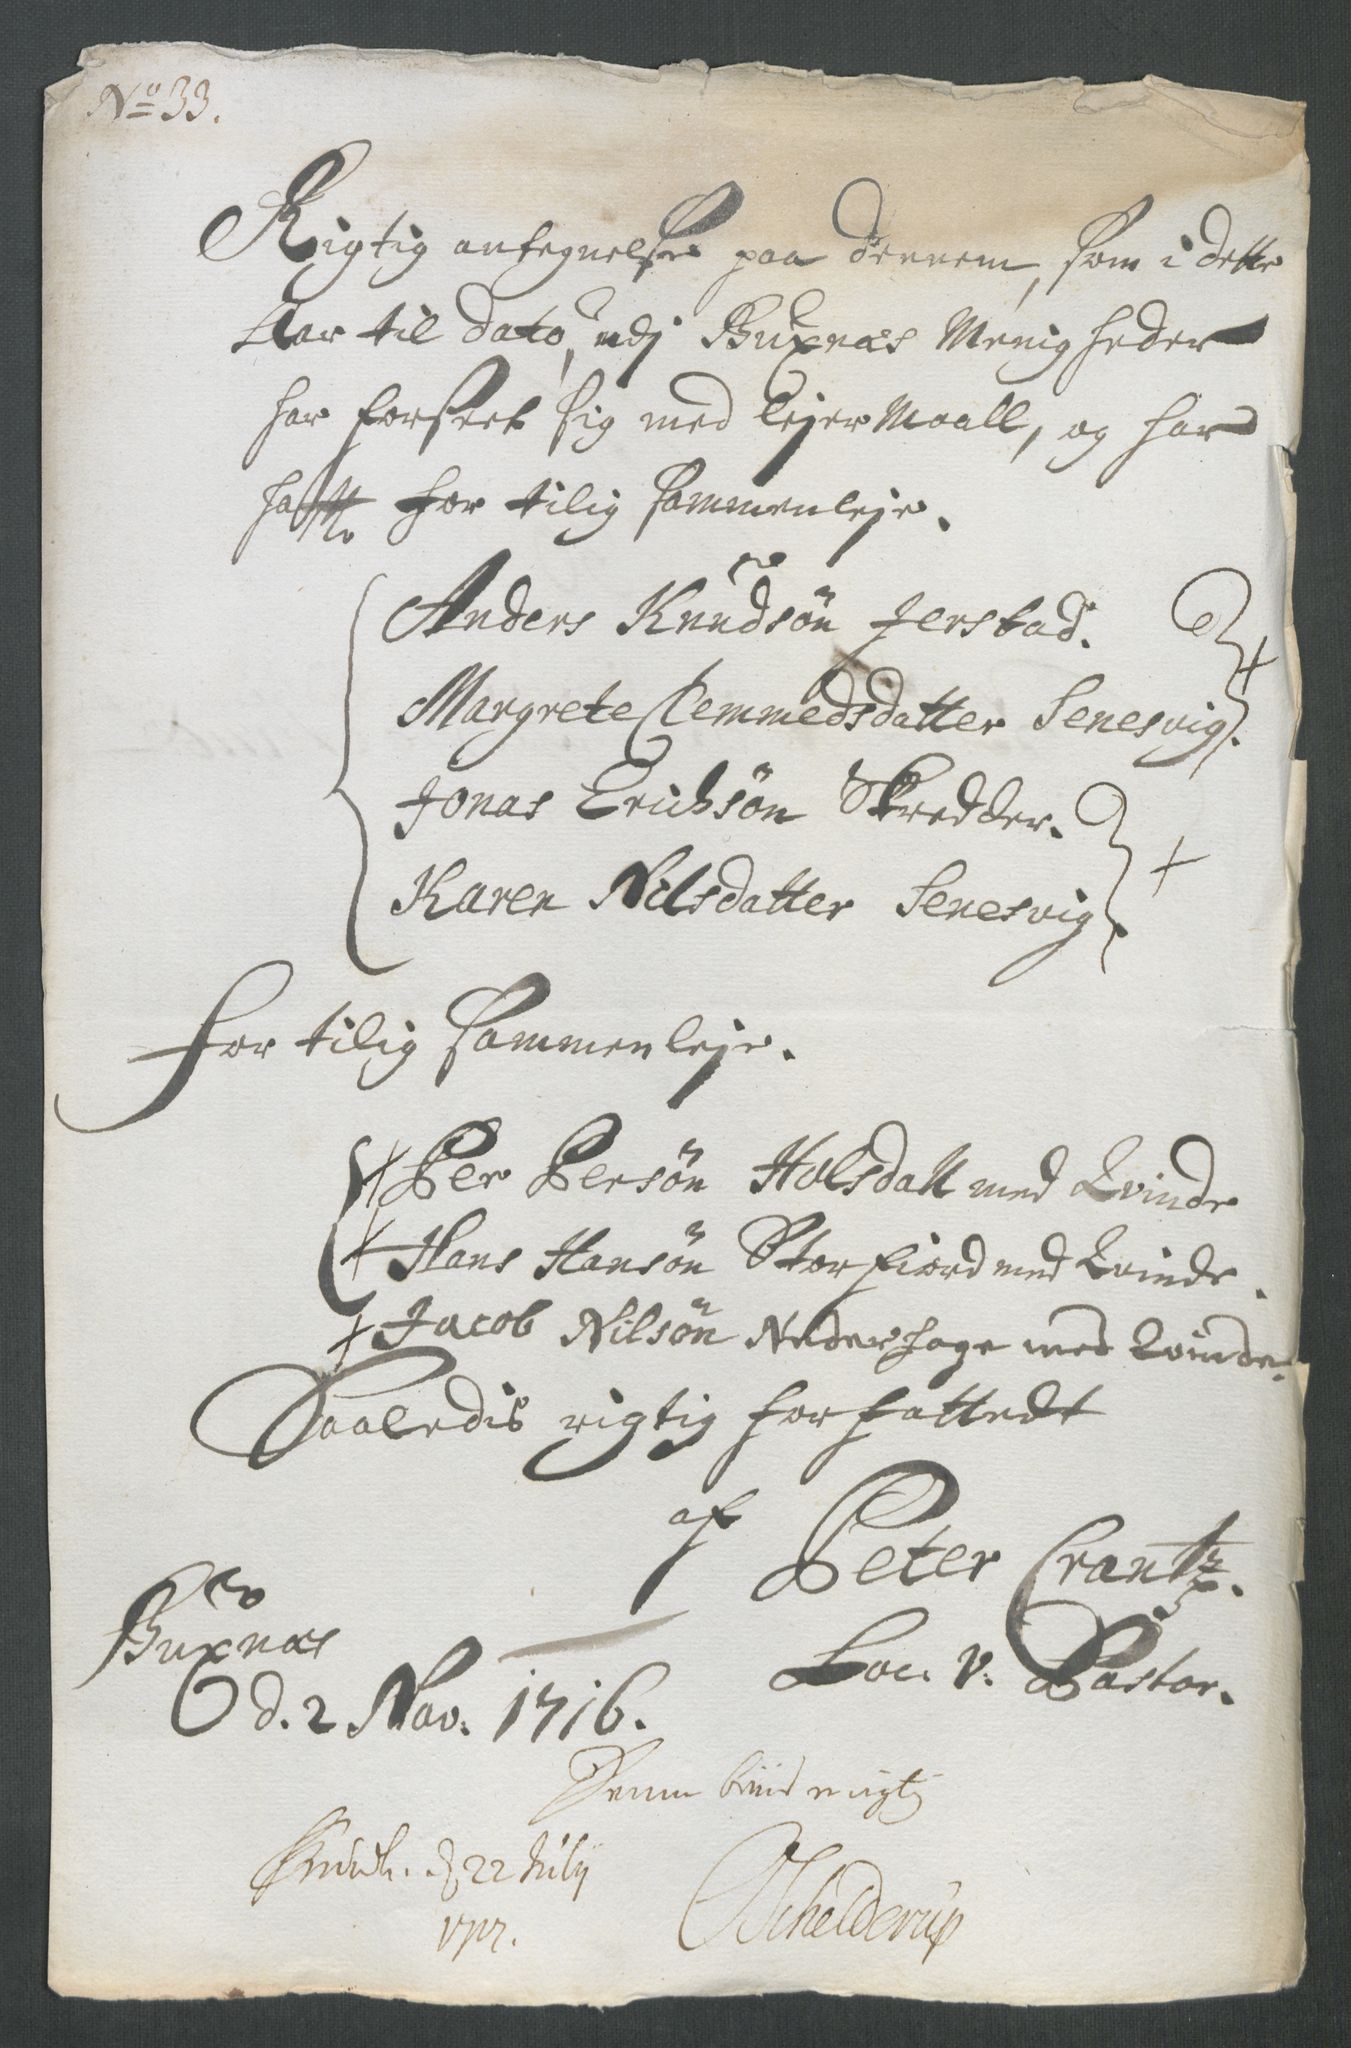 No 33.
Rigtig antegnelse paa dennem, som i dette
Aar til dato, udj Buxnæs Menigheder
har forseet sig med lejer Maall, og har
hafft for tilig sammenleje.
Anders Knudsön Jerstad.
Margrete Clemmedsdatter Senesvig.
Jonas Erichsön Skredder.
Karen Nilsdatter Senesvig.
For tilig sammenleje.
Per Persön Holsdall med Qvinde
Hans Hansön Storfiord med Qvinde.
Jacob Nilsön Nederhage med Qvinde.
Saaledis rigtig forfattedt
af Peter Crantz.
Loc. V. Pastor.
Buxnæs
d. 2 Nov. 1716.
d 22 July
1717.
Schelderup